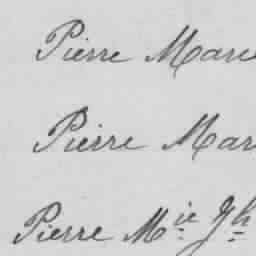 Pierre Marc
Pierre Mar
Pierre M.ie Jh